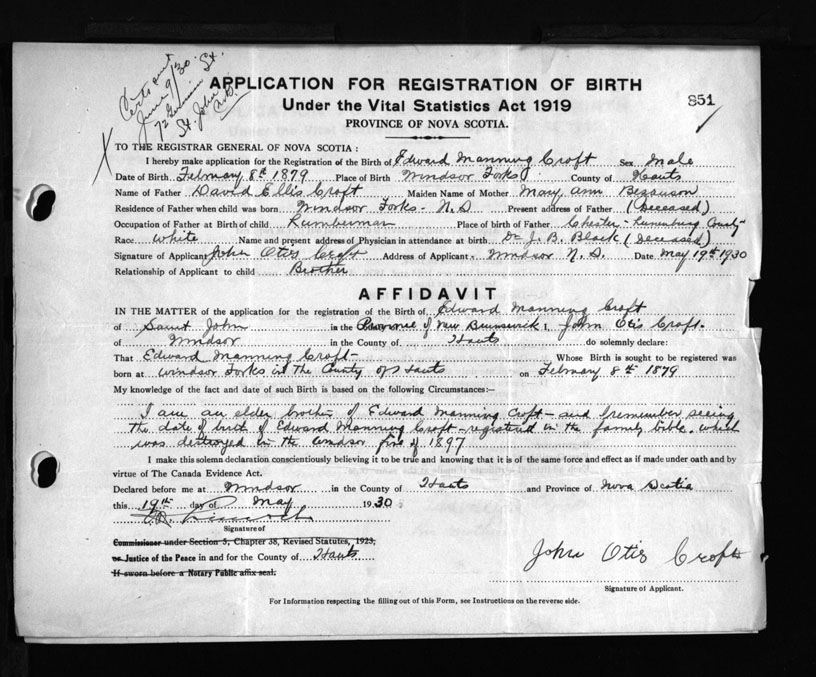 Cert sent
June 9/30.
72 St.
St. John
N.B.
APPLICATION FOR REGISTRATION OF BIRTH
Under the Vital Statistics Act 1919
851
PROVINCE OF NOVA SCOTIA.
TO THE REGISTRAR GENERAL OF NOVA SCOTIA:
I hereby make application for the Registration of the Birth of Edward Manning Croft Sex Male
Date of Birth February 8th 1879 Place of Birth Windsor Forks County of Hants
Name of Father David Ellis Croft Maiden Name of Mother Mary Ann
Residence of Father when child was born Windsor Forks - N.S Present address of Father (Deceased)
Occupation of Father at Birth of child Lumberman Place of birth of Father Chester - Lunenburg County
Race White Name and present address of Physician in attendance at birth Dr J. B. Black (Deceased)
Signature of Applicant John Otis Croft Address of Applicant Windsor N.S. Date May 19th 1930
Relationship of Applicant to child Brother
AFFIDAVIT
IN THE MATTER of the application for the registration of the Birth of Edward Manning Croft
of Saint John in the Province of New Brunswick I, John Otis Croft
of Windsor in the County of Hants do solemnly declare:
That Edward Manning Croft - Whose Birth is sought to be registered was
born at Windsor Forks in The County of Hants on February 8th 1879
My knowledge of the fact and date of such Birth is based on the following Circumstances:—
I am an elder brother of Edward Manning Croft - and remember seeing
the date of birth of Edward Manning Croft - registered in the family bible. which
was destroyed in the Windsor fire of 1897
I make this solemn declaration conscientiously believing it to be true and knowing that it is of the same force and effect as if made under oath and by
virtue of The Canada Evidence Act.
Declared before me at Windsor in the County of Hants and Province of Nova Scotia
this 19th day of May 1930
Signature of
Commissioner under Section 5, Chapter 38, Revised Statutes, 1923,
or Justice of the Peace in and for the County of Hants
If sworn before a Notary Public affix seal.
John Otis Croft
Signature of Applicant.
For Information respecting the filling out of this Form, see Instructions on the reverse side.